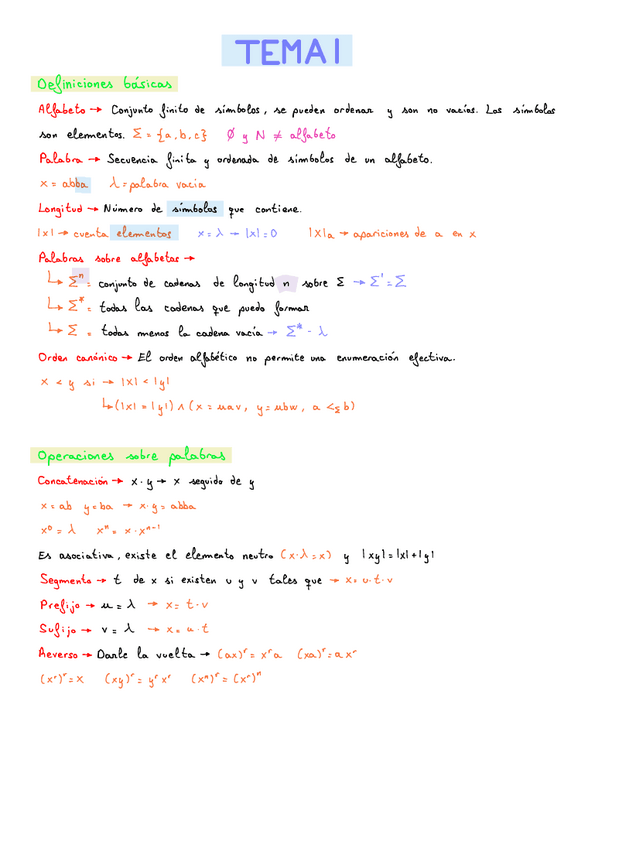 TEMA 1
Definiciones básicas
Alfabeto → Conjunto finito de símbolos, se pueden ordenar y son no vacíos. Los símbolos
son elementos. Σ = {a, b, c} Ø y N ≠ alfabeto
Palabra → Secuencia finita y ordenada de símbolos de un alfabeto.
x = abba λ = palabra vacia
Longitud → Número de símbolos que contiene.
|x| → cuenta elementos x = λ → |x| = 0 |x|a → apariciones de a en x
Palabras sobre alfabetos →
↳ Σⁿ = conjunto de cadenas de longitud n sobre Σ → Σ' = Σ
↳ Σ* = todas las cadenas que puedo formar
↳ Σ = todas menos la cadena vacía → Σ* - λ
Orden canónico → El orden alfabético no permite una enumeración efectiva.
x < y si → |x| < |y|
↳ (|x| = |y|) ∧ (x = uav, y = ubw, a <Σ b)
Operaciones sobre palabras
Concatenación → x · y → x seguido de y
x = ab y = ba → x · y = abba
x⁰ = λ xⁿ = x · xⁿ⁻¹
Es asociativa, existe el elemento neutro (x · λ = x) y |xy| = |x| + |y|
Segmento → t de x si existen u y v tales que → x = u · t · v
Prefijo → u = λ → x = t · v
Sufijo → v = λ → x = u · t
Reverso → Darle la vuelta → (ax)ʳ = xʳa (xa)ʳ = axʳ
(xʳ)ʳ = x (xy)ʳ = yʳxʳ (xⁿ)ʳ = (xʳ)ⁿ